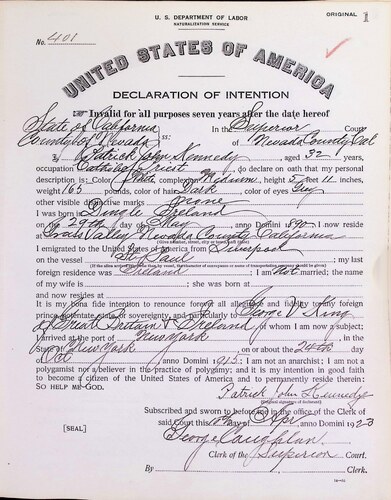 U. S. DEPARTMENT OF LABOR
NATURALIZATION SERVICE
ORIGINAL 1
No. 401
UNITED STATES OF AMERICA
DECLARATION OF INTENTION
Invalid for all purposes seven years after the date hereof
State of California In the Superior Court
County of Nevada ss: of Nevada County Cal
I, Patrick John Kennedy, aged 32 years,
occupation Catholic Priest, do declare on oath that my personal
description is: Color White, complexion Medium, height 5 feet 11 inches,
weight 165 pounds, color of hair Dark, color of eyes Grey
other visible distinctive marks none
I was born in Dingle Ireland
on the 29th day of May, anno Domini 1890; I now reside
at Grass Valley, Nevada County, California
I emigrated to the United States of America from Liverpool
on the vessel St. Paul; my last
foreign residence was Ireland; I am not married; the name
of my wife is; she was born at
and now resides at
It is my bona fide intention to renounce forever all allegiance and fidelity to any foreign
prince, potentate, state, or sovereignty, and particularly to George V King
of Great Britain & Ireland, of whom I am now a subject;
I arrived at the port of New York, in the
State of New York, on or about the 24th day
of Oct, anno Domini 1915; I am not an anarchist; I am not a
polygamist nor a believer in the practice of polygamy; and it is my intention in good faith
to become a citizen of the United States of America and to permanently reside therein:
SO HELP ME GOD.
Patrick John Kennedy
(Original signature of declarant)
Subscribed and sworn to before me in the office of the Clerk of
said Court this 10th day of Apr, anno Domini 1923
[SEAL]
George Caughlan
Clerk of the Superior Court.
By, Clerk.